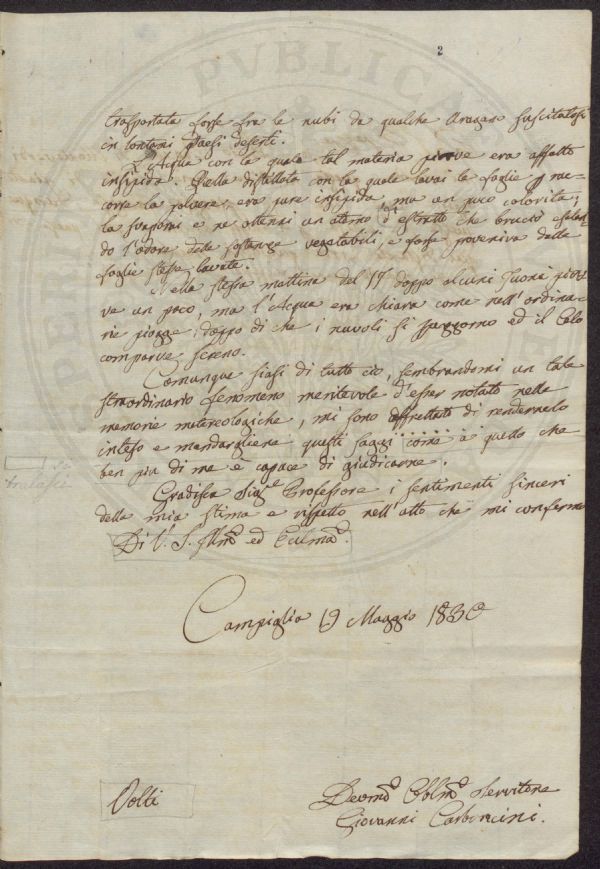 2
trasportata forse fra le nubi da qualche Oragano suscitatosi
in lontani Paesi deserti.
L'Acqua con la quale tal materia piovve era affatto
insipida. Quella distillata con la quale lavai le foglie p rac-
corre la polvere, era pure insipida, ma un poco colorita;
la svaporai e ne ottenni un atomo d'estratto che bruciò esalan-
do l'odore delle sostanze vegetabili, e forse proveniva dalle
foglie stesse lavate.
Nella stessa mattina del 17 doppo alcuni tuoni piov-
ve un poco, ma l'Acqua era chiara come nell'ordina-
rie piogge; doppo di che i nuvoli si ed il Celo
comparve sereno.
Comunque siasi di tutto ciò, sembrandomi un tale
straordinario fenomeno meritevole d'esser notato nelle
memorie metereologiche, mi sono affrettato di rendernelo
inteso e mandargliene questi saggi come a quello che
ben piu di me è capace di giudicarne.
tralasci
Gradisca Sigre Professore i sentimenti sinceri
della mia stima e rispetto nell'atto che mi confermo
Di V. S. Illma ed Eccلma
Campiglia 19 Maggio 1830
Volti
Devmo Obblmo Servitore
Giovanni Carboncini.
PVBLICA